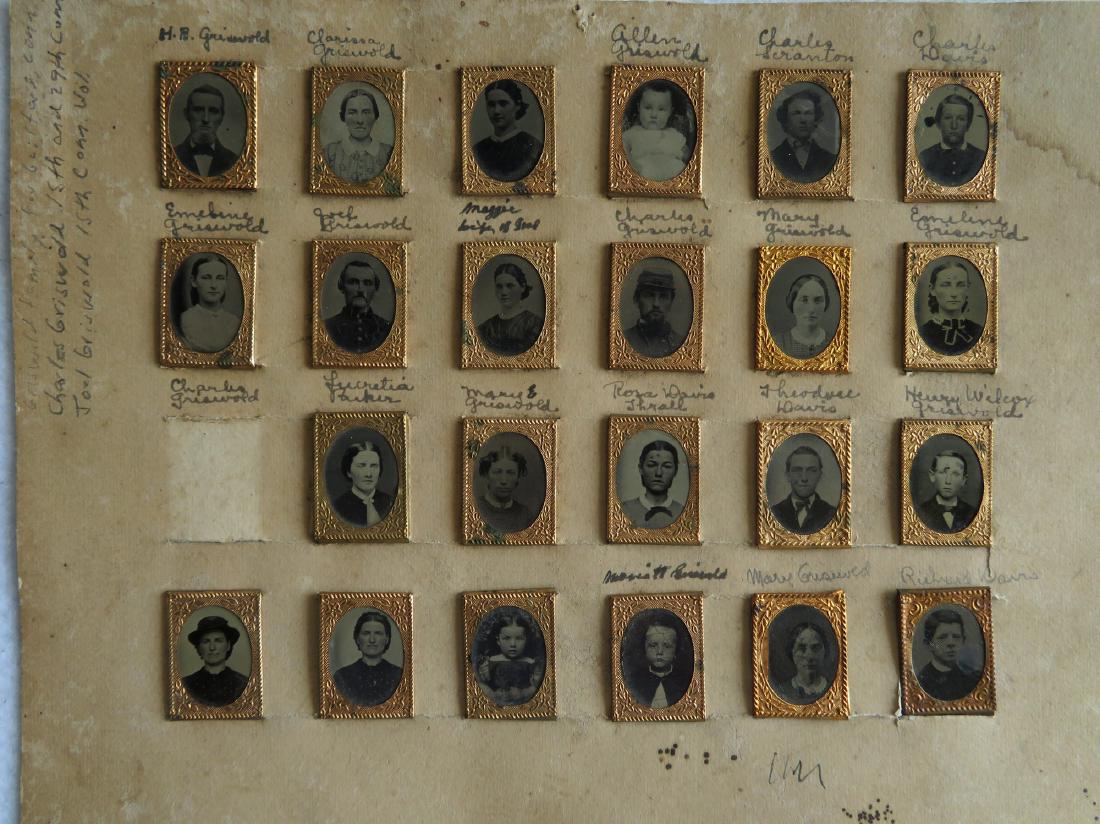 H. B. Griswold
Clarissa
Griswold
Allen
Griswold
Charles
Scranton
Charles
Davis
Emeline
Griswold
Joel
Griswold
Maggie
wife of Joel
Charles
Griswold
Mary
Griswold
Emeline
Griswold
Charles
Griswold
Lucretia
Parker
Mary E
Griswold
Rosa Davis
Thrall
Theodore
Davis
Henry Wilcox
Griswold
Griswold
Mary Griswold
Richard Davis
Griswold family Guilford Conn
Charles Griswold 15th and 29th Conn
Joel Griswold 15th Conn Vol.